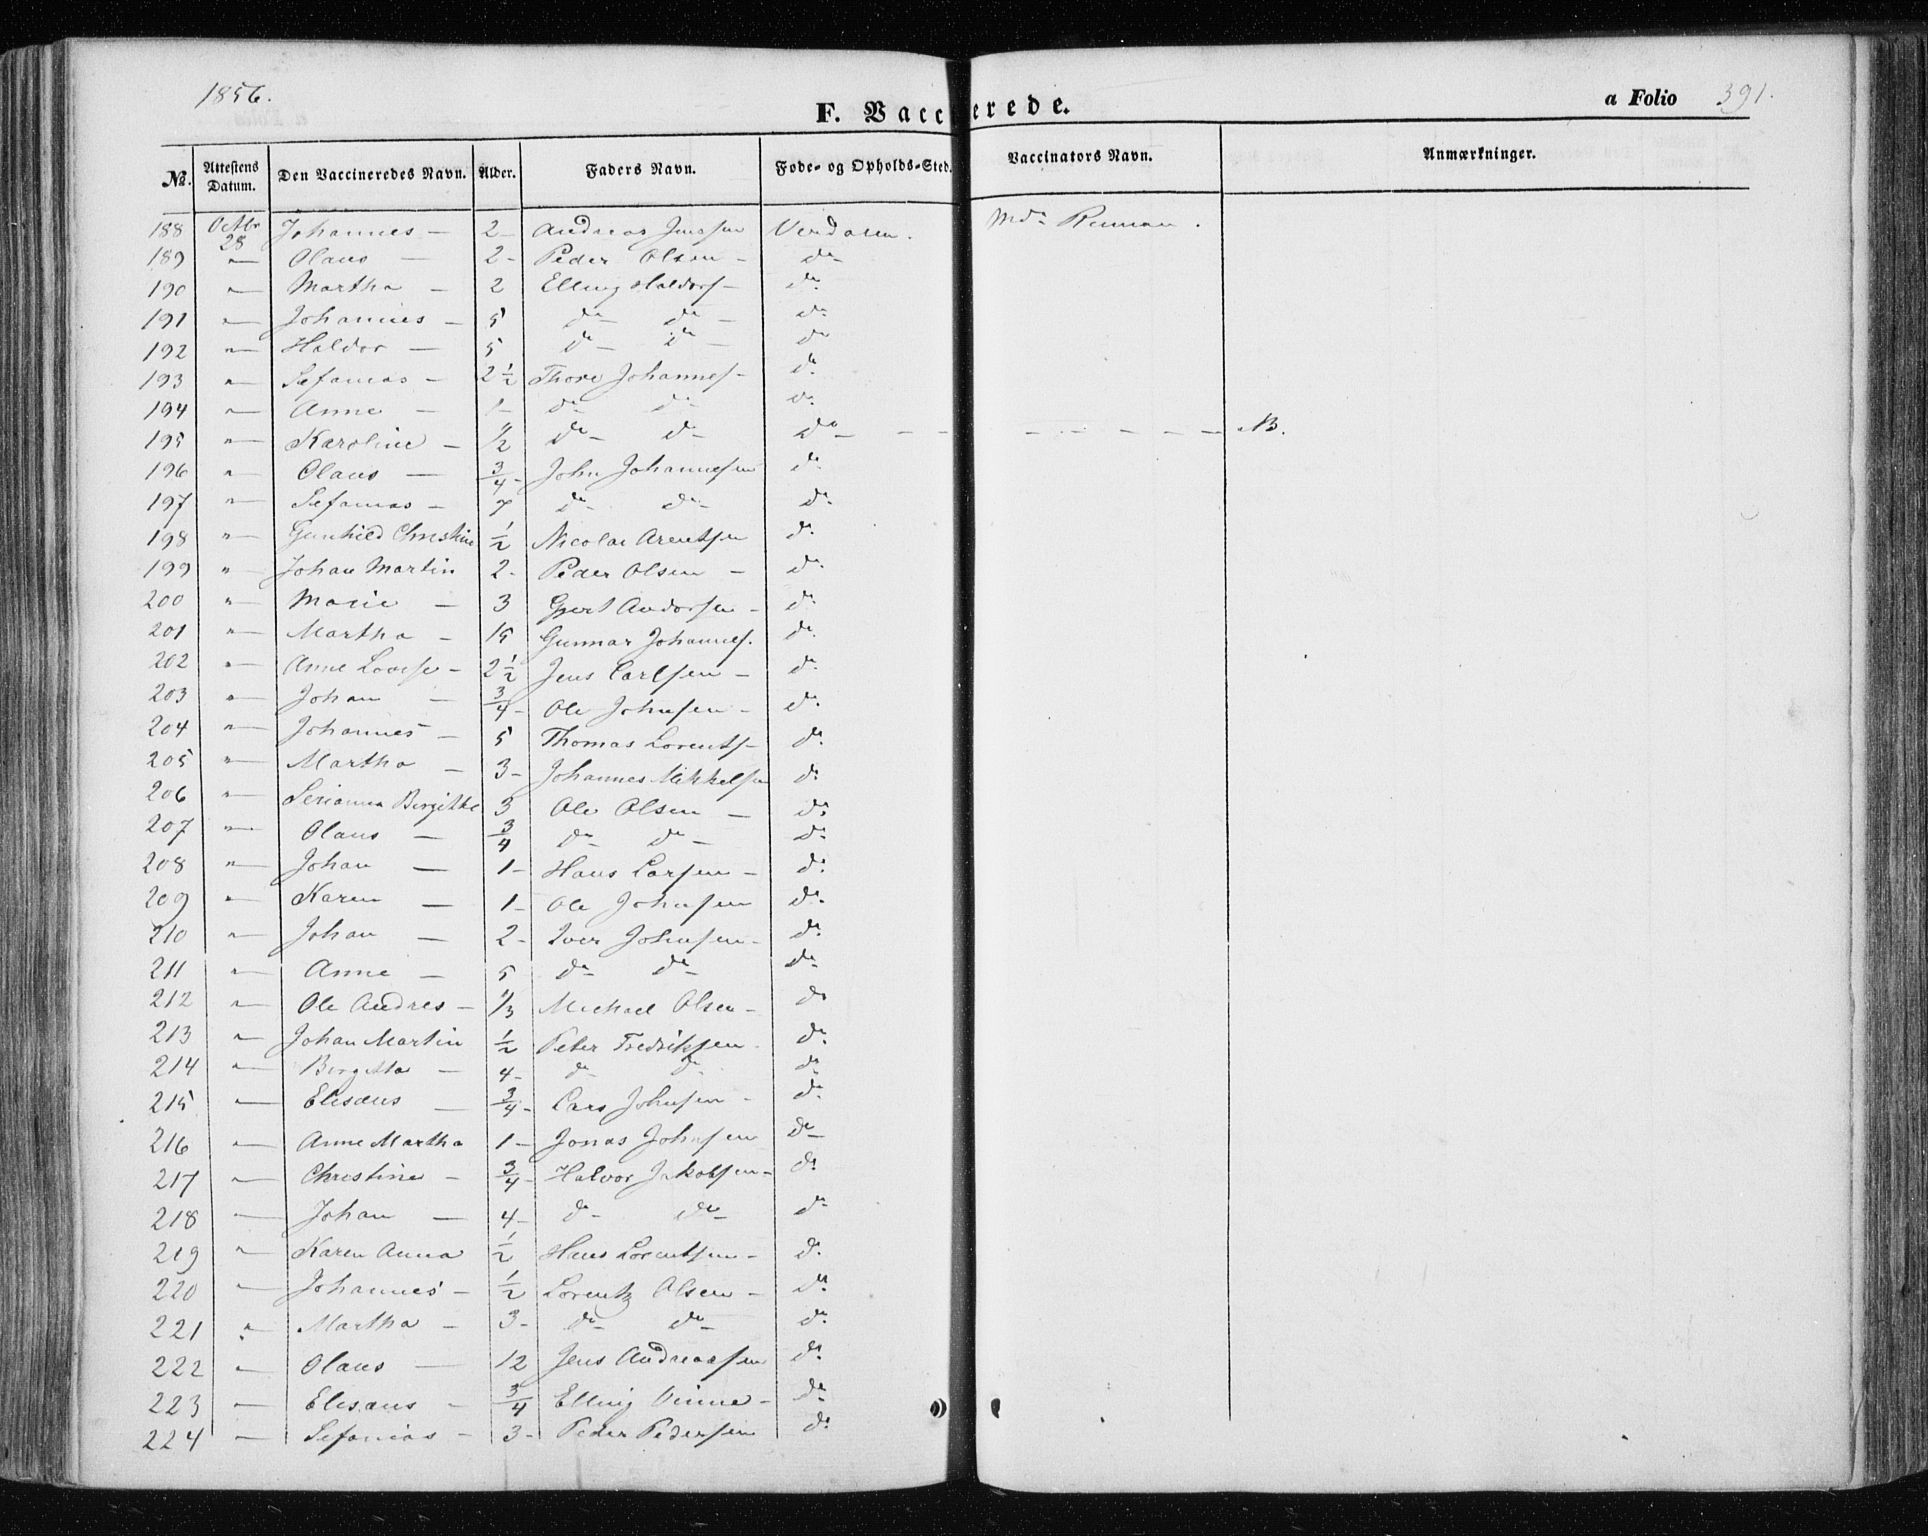 1856.
F. Vaccinerede.
a Folio 391.
No. Attestens Datum. Den Vaccineredes Navn. Alder. Faders Navn. Føde- og Opholds-Sted. Vaccinators Navn. Anmærkninger.
188 Octbr 28 Johannes — 2 — Andreas Jenssen Verdalen.
189 " — Olaus — 2 - Peder Olsen - do
190 " — Martha — 2 Elling Haldors - do
191 " — Johannes — 5 do do do
192 " — Haldor — 5 do do do
193 " — Sefanias - 2 1/2 Thore Johannes - do
194 " — Anne — 1 - do do do
195 " — Karoline — 1/2 do do do — NB.
196 " Olaus — 3/4 - John Johannesen do
197 " Sefanias - 7 do do do
198 " Gunhild Christine 1/2 Nicolai Arentsen do
199 " Johan Martin 2 - Peder Olsen - do
200 " Marie — 3 Gjert Andorsen - do
201 " Martha - 15 Gunnar Johannes. do
202 " Anne Lovise - 2 1/2 Jens Carlsen - do
203 " Johan - 3/4 - Ole Johnsen - do
204 " Johannes - 5 Thomas Lorents - do
205 " Martha - 3 - Johannes Mikkelsen do
206 " Serianna Birgitte 3 Ole Olsen - do
207 " Olaus — 3/4 do do do
208 " Johan — 1 - Hans Larsen - do
209 " Karen — 1 - Ole Johnsen do
210 " Johan — 2 - Iver Johnsen - do
211 " Anne — 5 do do do
212 " Ole Andres - 1/3 Michael Olsen - do
213 " Johan Martin 1/2 Peter Fredriksen - do
214 " Birgitta - 4 - do do do
215 " Elisæus — 3/4 - Lars Johnsen - do
216 " Anne Martha 1 - Jonas Johnsen do
217 " Christine - 3/4 - Halvor Jakobsen - do
218 " Johan — 4 - do do do
219 " Karen Anna 1/2 Hans Lorentsen - do
220 " Johannes - 1/2 Lorentz Olsen - do
221 " Martha - 3 - do do do
222 " Olaus — 12 Jens Andreassen do
223 " Elisæus - 3/4 Elling Vinne - do
224 " Sefanias - 3 - Peder Pedersen do